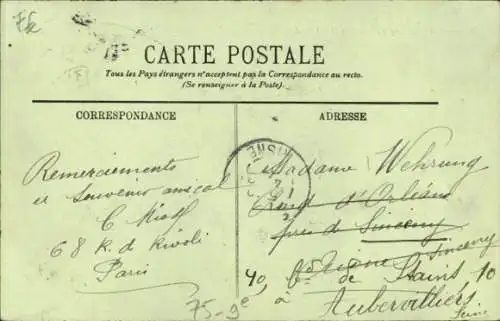 CARTE POSTALE
Tous les Pays étrangers n'acceptent pas la Correspondance au recto.
(Se renseigner à la Poste)
CORRESPONDANCE
ADRESSE
Remerciements
et souvenir amical
C
68 R. de Rivoli
Paris
75-9e
Madame Wehrung
Rond d'Orléans
près de Sinceny
Sinceny
40, de Stains, 10
à Aubervilliers
Seine
AISNE